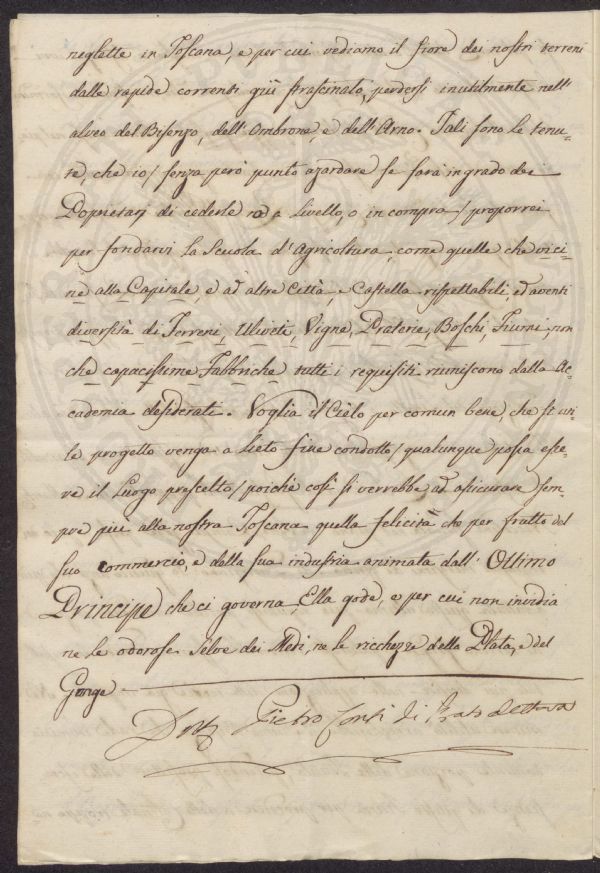 neglette in Toscana, e per cui vediamo il fiore dei nostri terreni
dalle rapide correnti giù strascinato, perdersi inutilmente nell'
alveo del Bisenzo, dell'Ombrone, e dell'Arno. Tali sono le tenu-
te, che io / senza però punto azardare se sarà in grado dei
Proprietarj di cederle o a Livello, o in compra / proporrei
per fondarvi la Scuola d'Agricoltura, come quelle che vici-
ne alla Capitale, e ad altre Città, e Castella rispettabili, ed aventi
diversità di Terreni, Uliveti, Vigne, Praterie, Boschi, Fiumi, non
che capacissime Fabbriche tutti i requisiti riuniscono dalla Ac-
cademia desiderati. Voglia il Cielo per comun bene, che sì uti-
le progetto venga a lieto fine condotto / qualunque possa esse-
re il Luogo prescelto / poichè così si verrebbe ad assicurare sem-
pre più alla nostra Toscana quella felicità che per frutto del
suo commercio, e della sua industria animata dall'Ottimo
Principe che ci governa, Ella gode, e per cui non invidia
ne le odorose Selve dei Medi, ne le ricchezze della Plata, e del
Gange
Pietro Conti di Prato